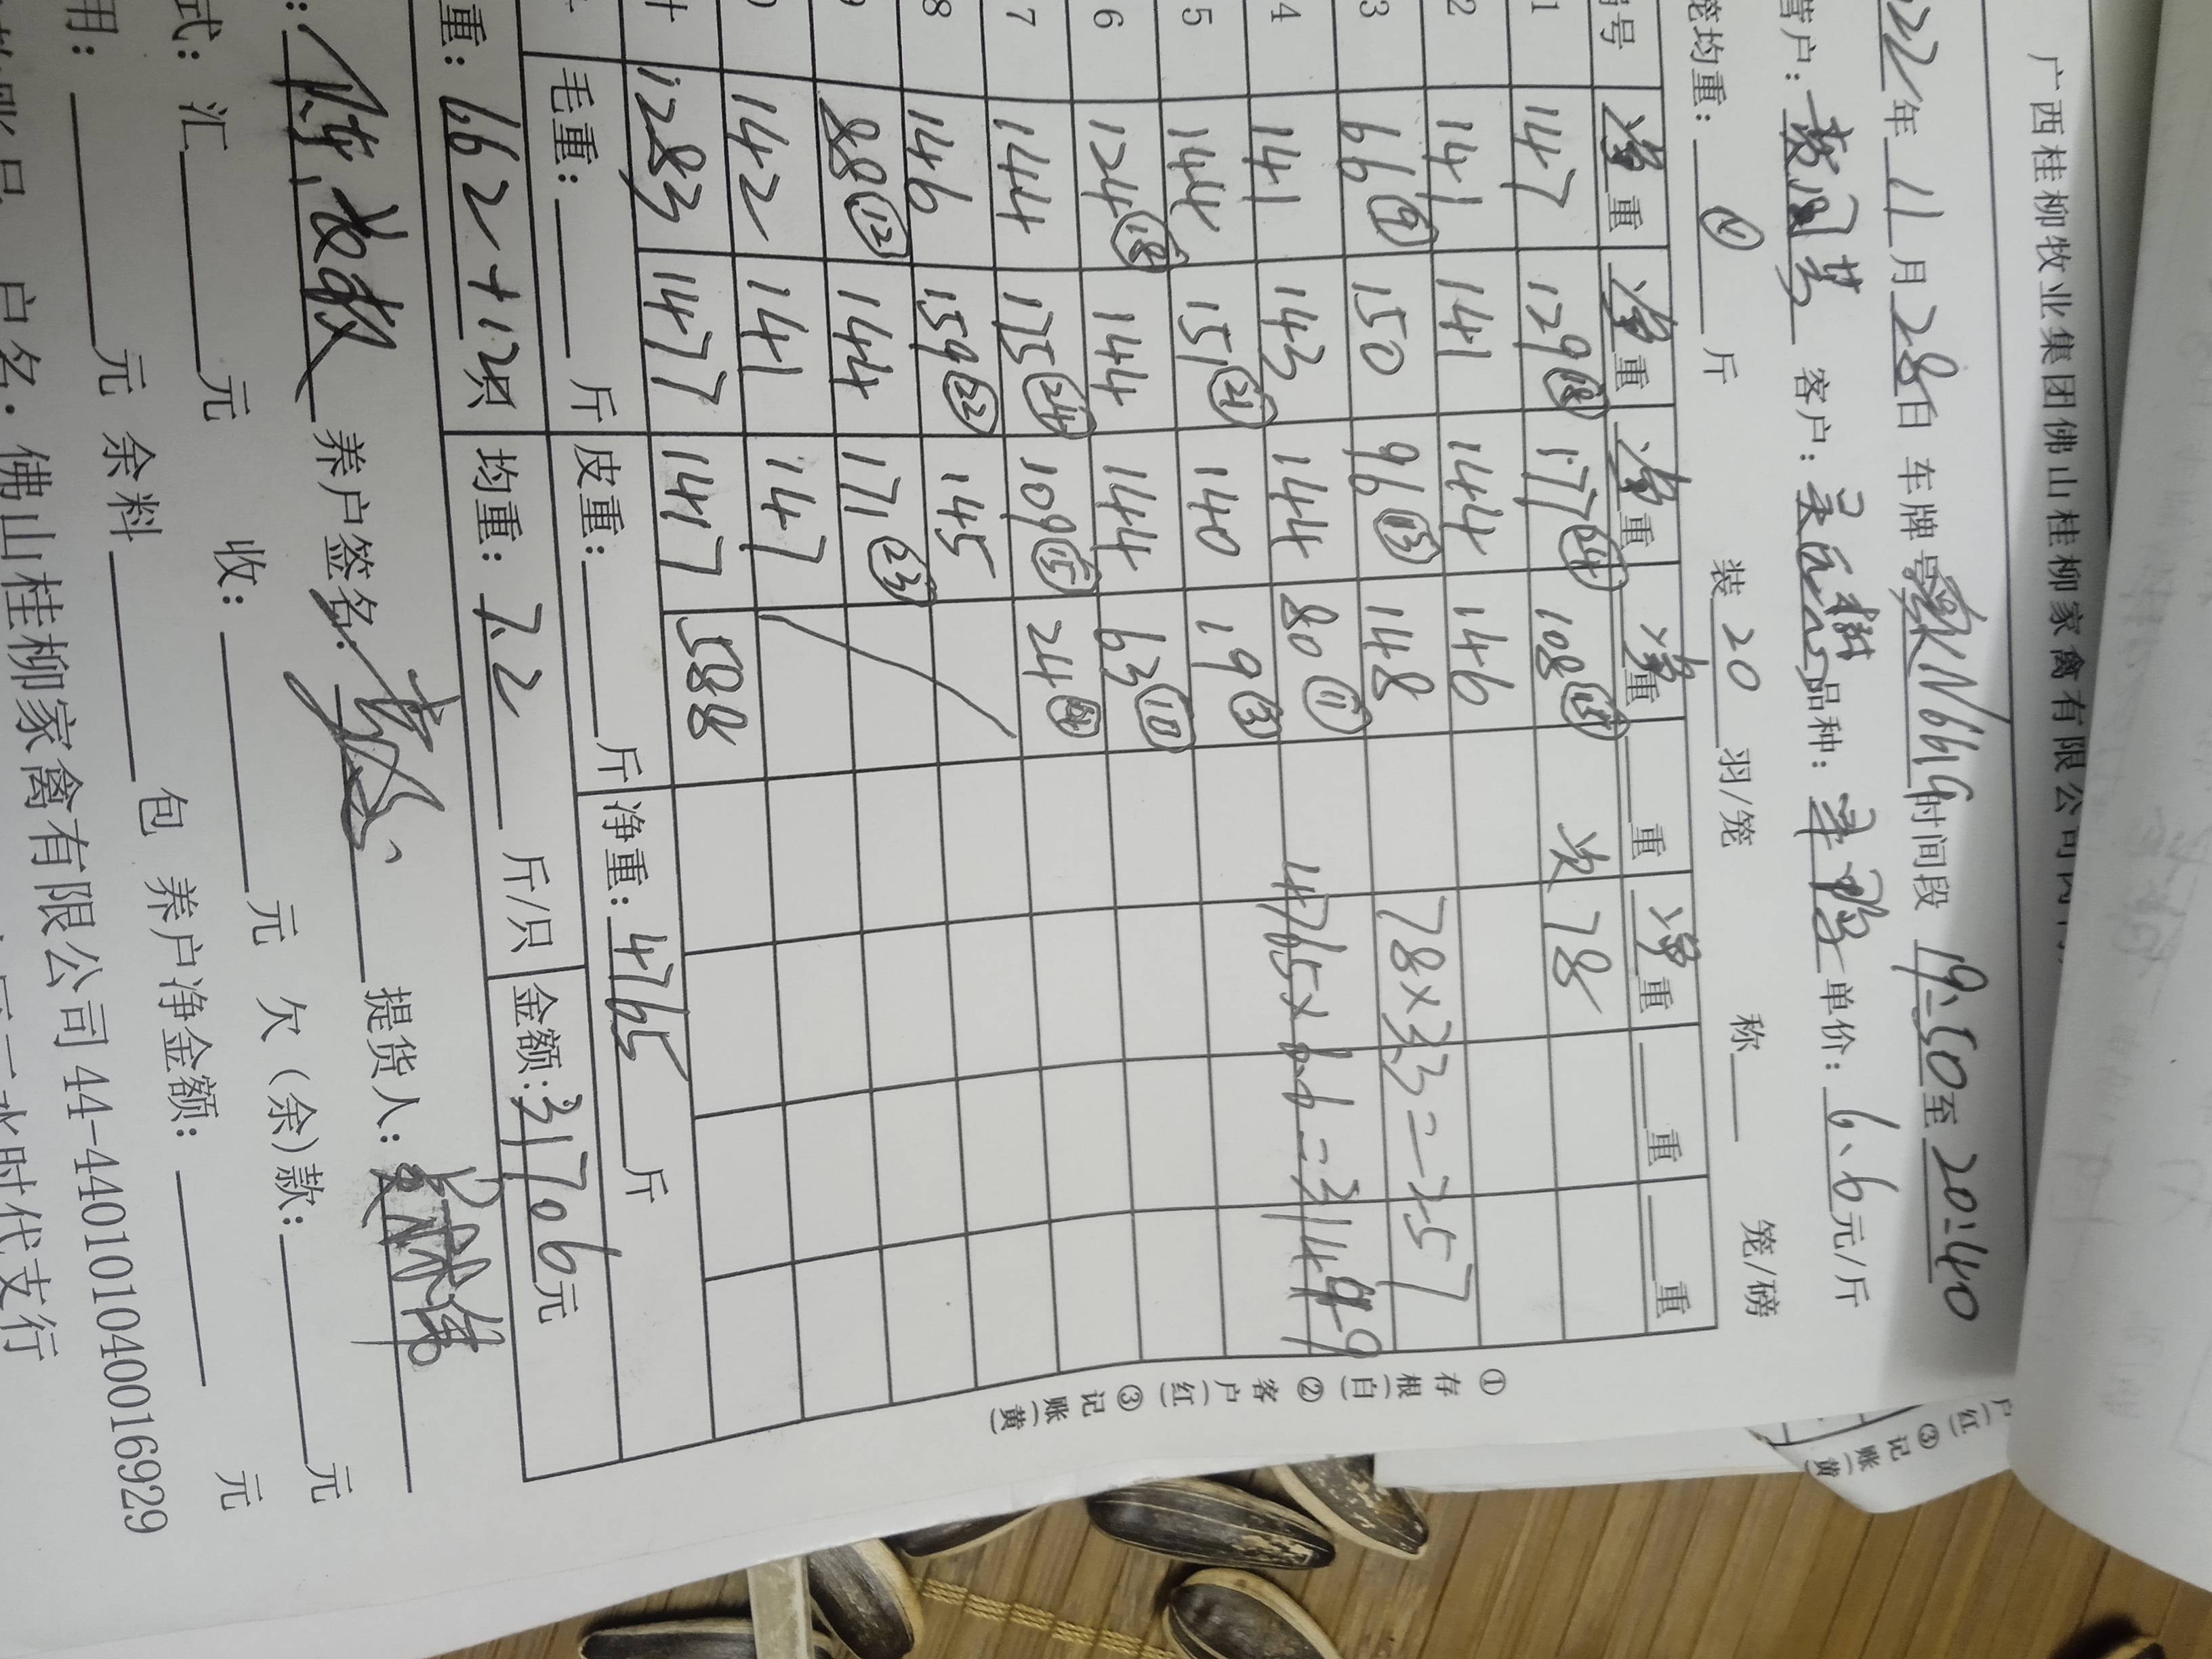 广西桂柳牧业集团佛山桂柳家禽有限公司
022年11月28日 车牌号 N6619 时间段 19:50至20:40
管户: 客户: 品种: 单价: 6.6元/斤
笼均重: 0 斤 装 20 羽/笼 称 笼/磅
号 净重 净重 净重 净重 重 净重 重 重
1 147 129⑱ 177㉔ 108⑮ 次 78
2 141 141 144 146
3 66⑨ 150 96⑬ 148 78×3.3=257
4 141 143 144 80⑪ 4765×6.6=31449
5 144 151㉑ 140 19③
6 124⑱ 144 144 63⑩
7 144 175㉔ 109⑮ 24④
8 146 159㉒ 145
9 88⑫ 144 171㉓
0 142 141 147
计 1283 1477 1417 588
毛重: 斤 皮重: 斤 净重: 4765 斤
重: 662+12只 均重: 7.2 斤/只 金额: 31706元
: 养户签名: 提货人:
式: 汇 元 收: 元 欠(余)款: 元
用: 元 余料 包 养户净金额: 元
账号 户名: 佛山桂柳家禽有限公司 44-440101040016929
水时代支行
① 存根(白) ② 客户(红) ③ 记账(黄)
户(红) ③ 记账(黄)